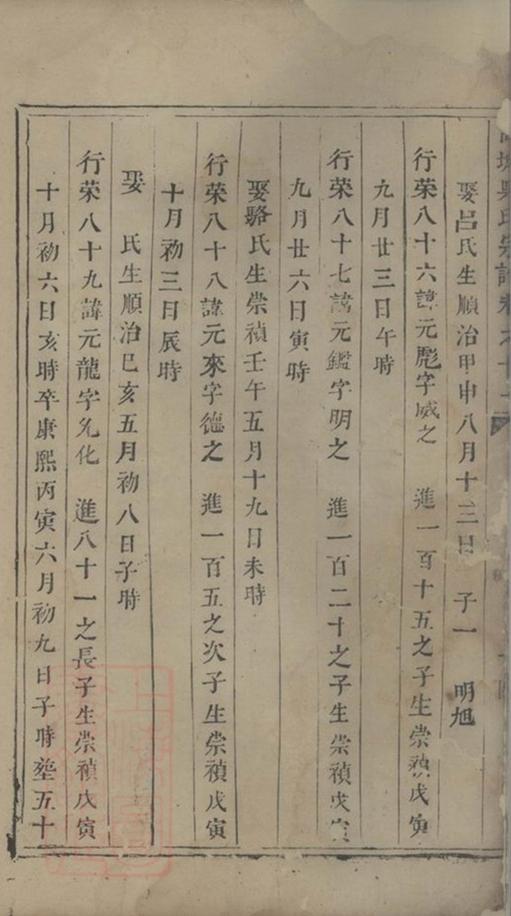 氏宗譜卷之十
娶呂氏生順治甲申八月十三日 子一 明旭
行荣八十六諱元彪字威之 進一百十五之子生崇禎戊寅
九月廿三日午時
行荣八十七諱元鑑字明之 進一百二十之子生崇禎戊寅
九月廿六日寅時
娶駱氏生崇禎壬午五月十九日未時
行荣八十八諱元來字德之 進一百五之次子生崇禎戊寅
十月初三日辰時
娶 氏生順治巳亥五月初八日子時
行荣八十九諱元龍字允化 進八十一之長子生崇禎戊寅
十月初六日亥時卒康熙丙寅六月初九日子時塟五十